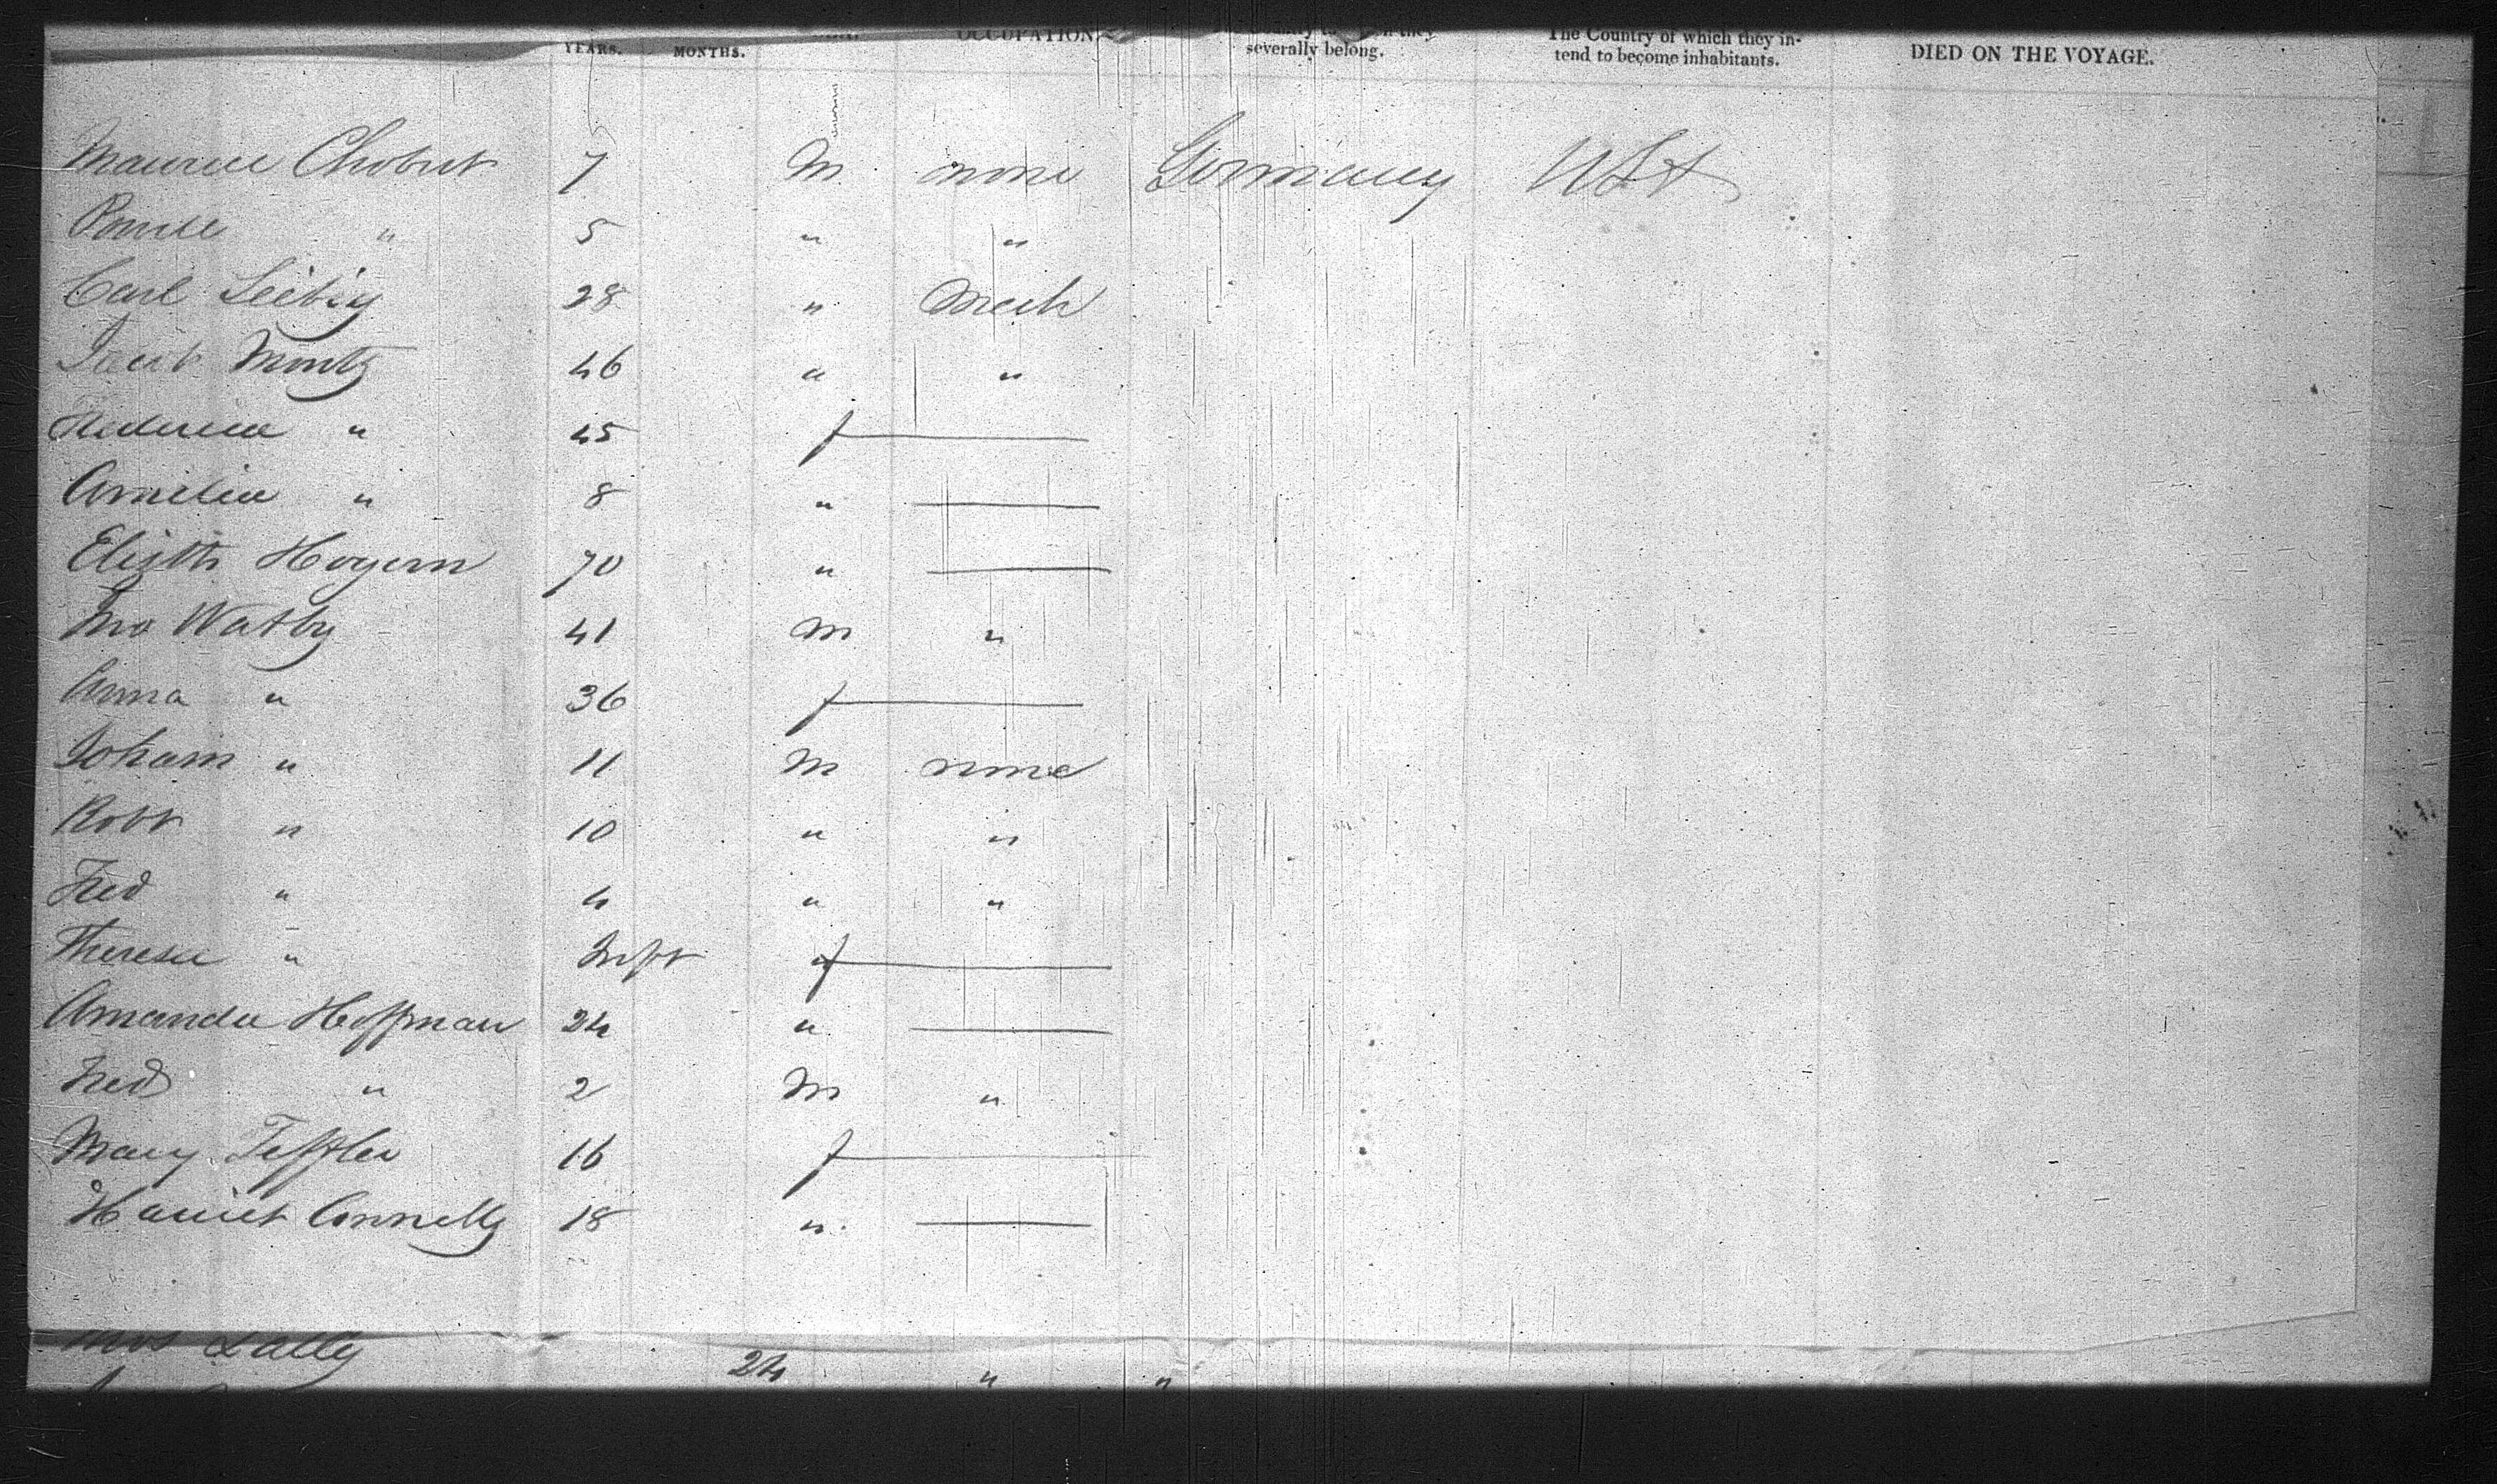 YEARS. MONTHS. OCCUPATION. severally belong. The Country of which they in-
tend to become inhabitants. DIED ON THE VOYAGE.
Maurice Chobut 7 M none Germany USA
" 5 " "
Carl Leibig 28 " Mech
Jacob Montz 46 " "
Frederica " 45 f
Amelia " 8 "
Elizth Hoyern 70 "
Jno Watby 41 M "
Anna " 36 f
Joham " 11 M none
Robt " 10 " "
Fred " 4 " "
Theresa " Inft f
Amanda Hoffman 24 "
Fred " 2 M "
Mary Teffler 16 f
Harriet Connelly 18 "
Lally 24 " "